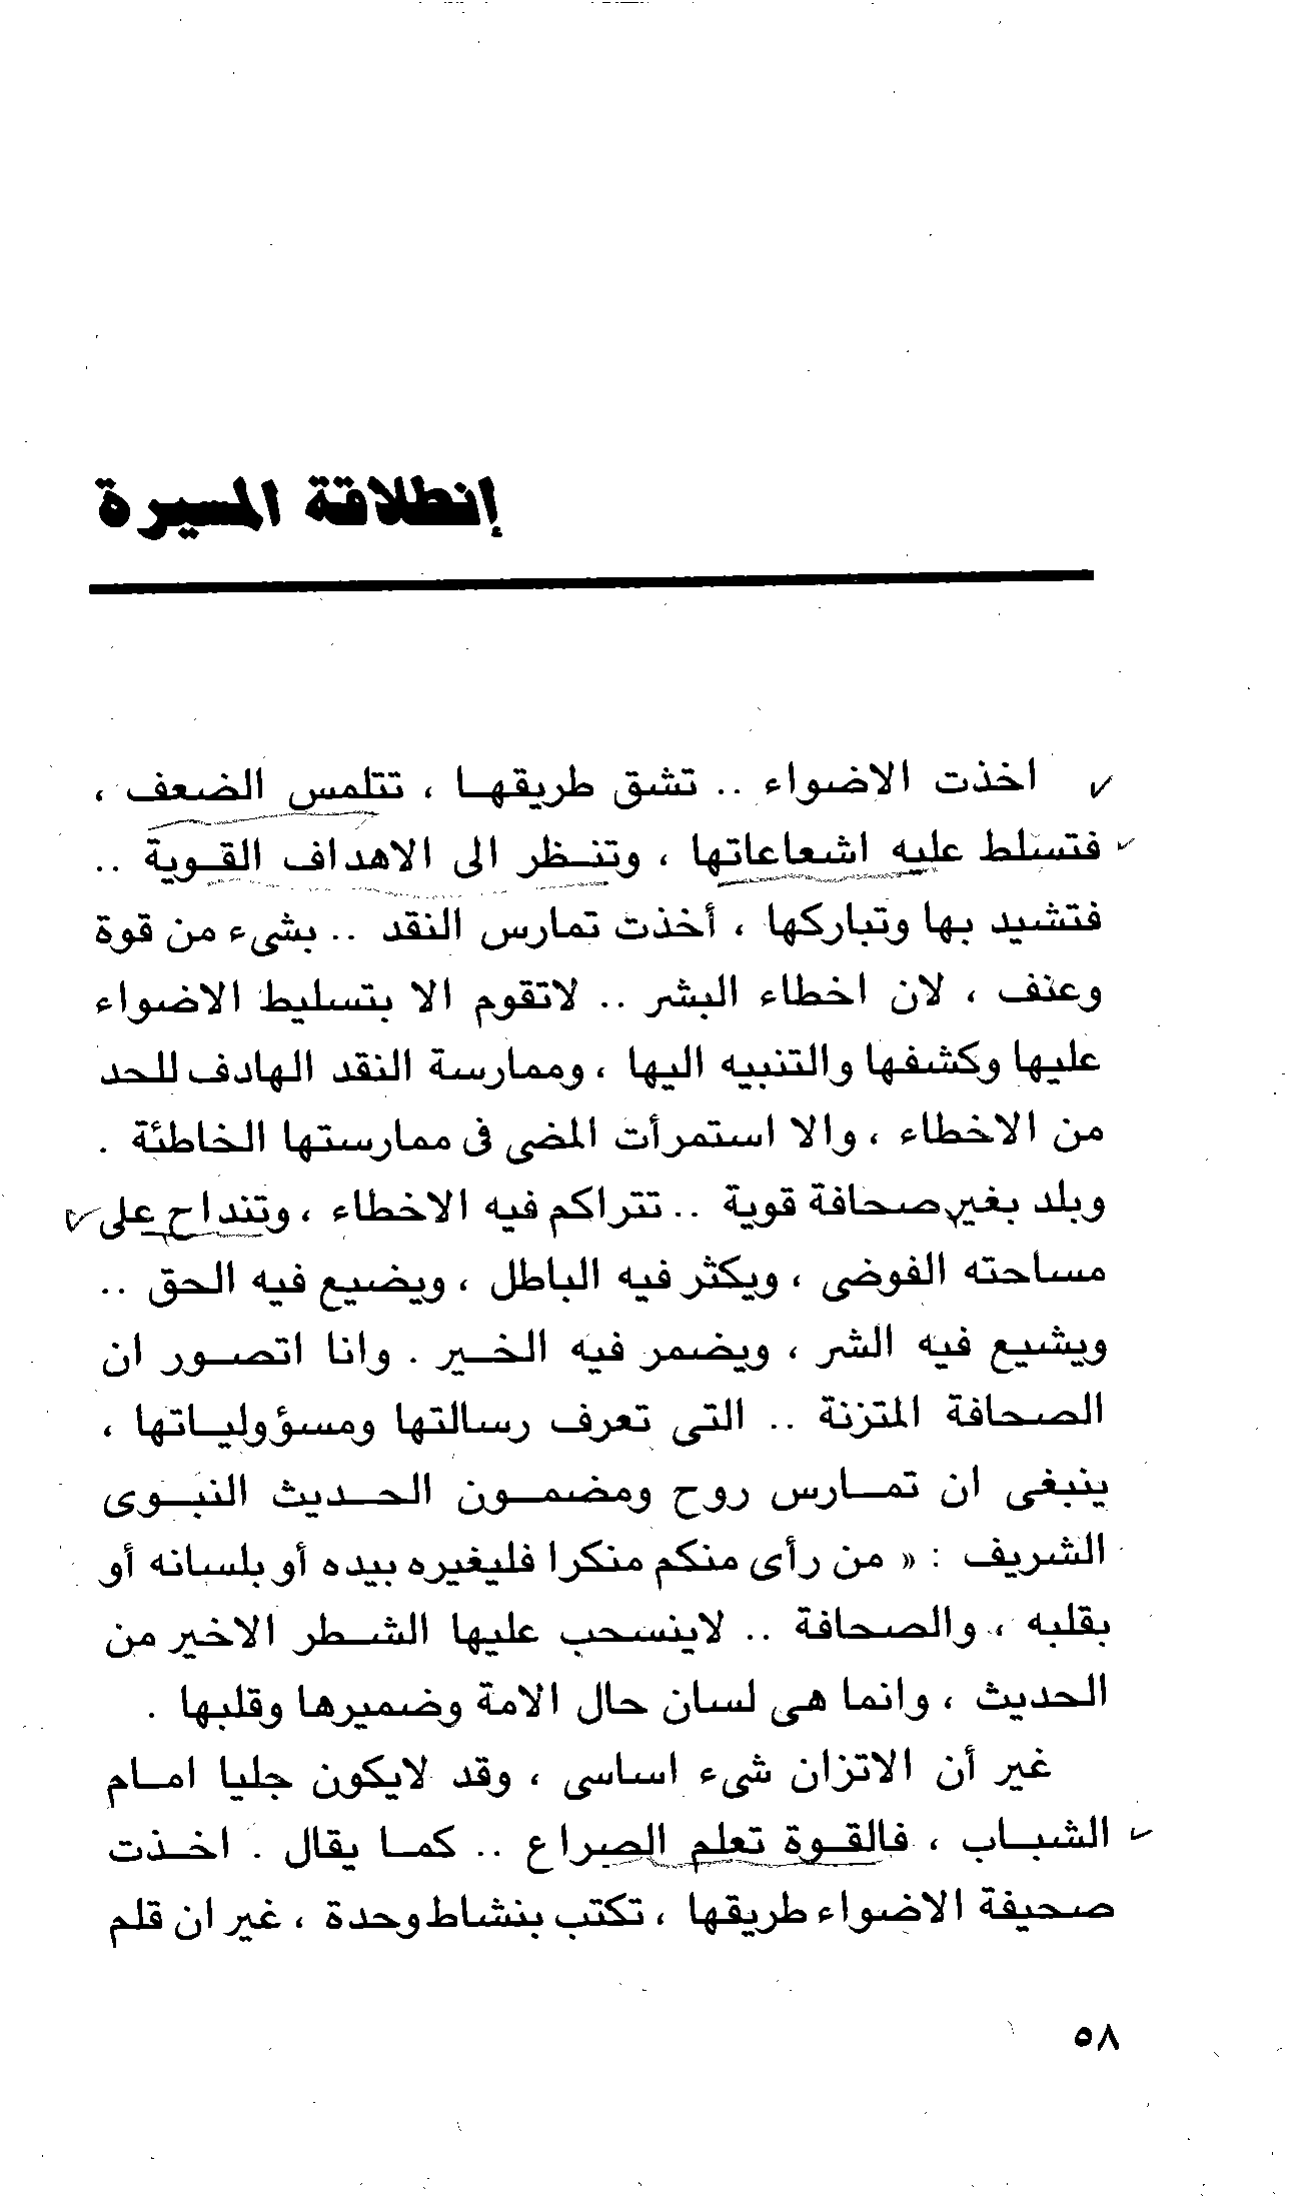 إنطلاقة المسيرة
اخذت الاضواء .. تشق طريقهـا ، تتلمس الضعف ،
فتسلط عليه اشعاعاتها ، وتنـظر الى الاهداف القـوية ..
فتشيد بها وتباركها ، أخذت تمارس النقد .. بشىء من قوة
وعنف ، لان اخطاء البشر .. لاتقوم الا بتسليط الاضواء
عليها وكشفها والتنبيه اليها ، وممارسة النقد الهادف للحد
من الاخطاء ، والا استمرأت المضى فى ممارستها الخاطئة .
وبلد بغير صحافة قوية .. تتراكم فيه الاخطاء ، وتنداح على
مساحته الفوضى ، ويكثر فيه الباطل ، ويضيع فيه الحق ..
ويشيع فيه الشر ، ويضمر فيه الخـير . وانا اتصـور ان
الصحافة المتزنة .. التى تعرف رسالتها ومسؤوليـاتها ،
ينبغى ان تمـارس روح ومضمـون الحـديث النبـوى
الشريف : « من رأى منكم منكرا فليغيره بيده أو بلسانه أو
بقلبه ، والصحافة .. لاينسحب عليها الشـطر الاخير من
الحديث ، وانما هى لسان حال الامة وضميرها وقلبها .
غير أن الاتزان شىء اساسى ، وقد لايكون جليا امـام
الشبـاب ، فالقـوة تعلم الصراع .. كمـا يقال . اخـذت
صحيفة الاضواء طريقها ، تكتب بنشاط وحدة ، غير ان قلم
٥٨